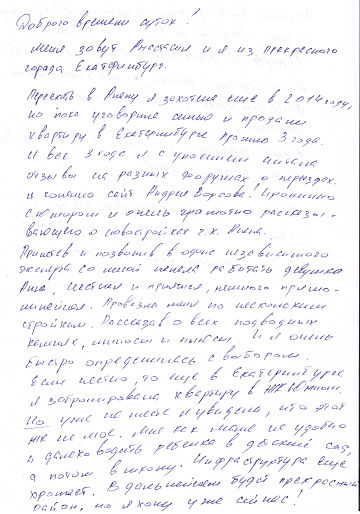 Доброго времени суток!
Меня зовут Анастасия и я из прекрасного
города Екатеринбург.
Переехать в Анапу я захотела еще в 2014 году,
но пока уговорила семью и продали
квартиру в Екатеринбурге прошло 3 года.
И все 3 года я с упоением читала
отзывы на разных форумах о переездах.
и конечно сайт Андрея! Иронично
с юмором и очень грамотно рассказы-
вающего о новостройках г.к. Анапа.
Приехав и позвонив в офис независимого
эксперта со мной начала работать девушка
Яна. Честная и приятная, немного прямо-
линейная. Провезла меня по нескольким
стройкам. Рассказав о всех подводных
камнях, минусы и плюсы. И я очень
быстро определилась с выбором.
Если честно, то еще в Екатеринбурге
я забронировала квартиру в ЖК Южном.
Но уже на месте я увидела, что этот
ЖК не мое. Мне как маме не удобно
и далеко водить ребенка в детский сад,
а потом в школу. Инфраструктура еще
хромает. В дальнейшем будет прекрасный
район, но я хочу уже сейчас!